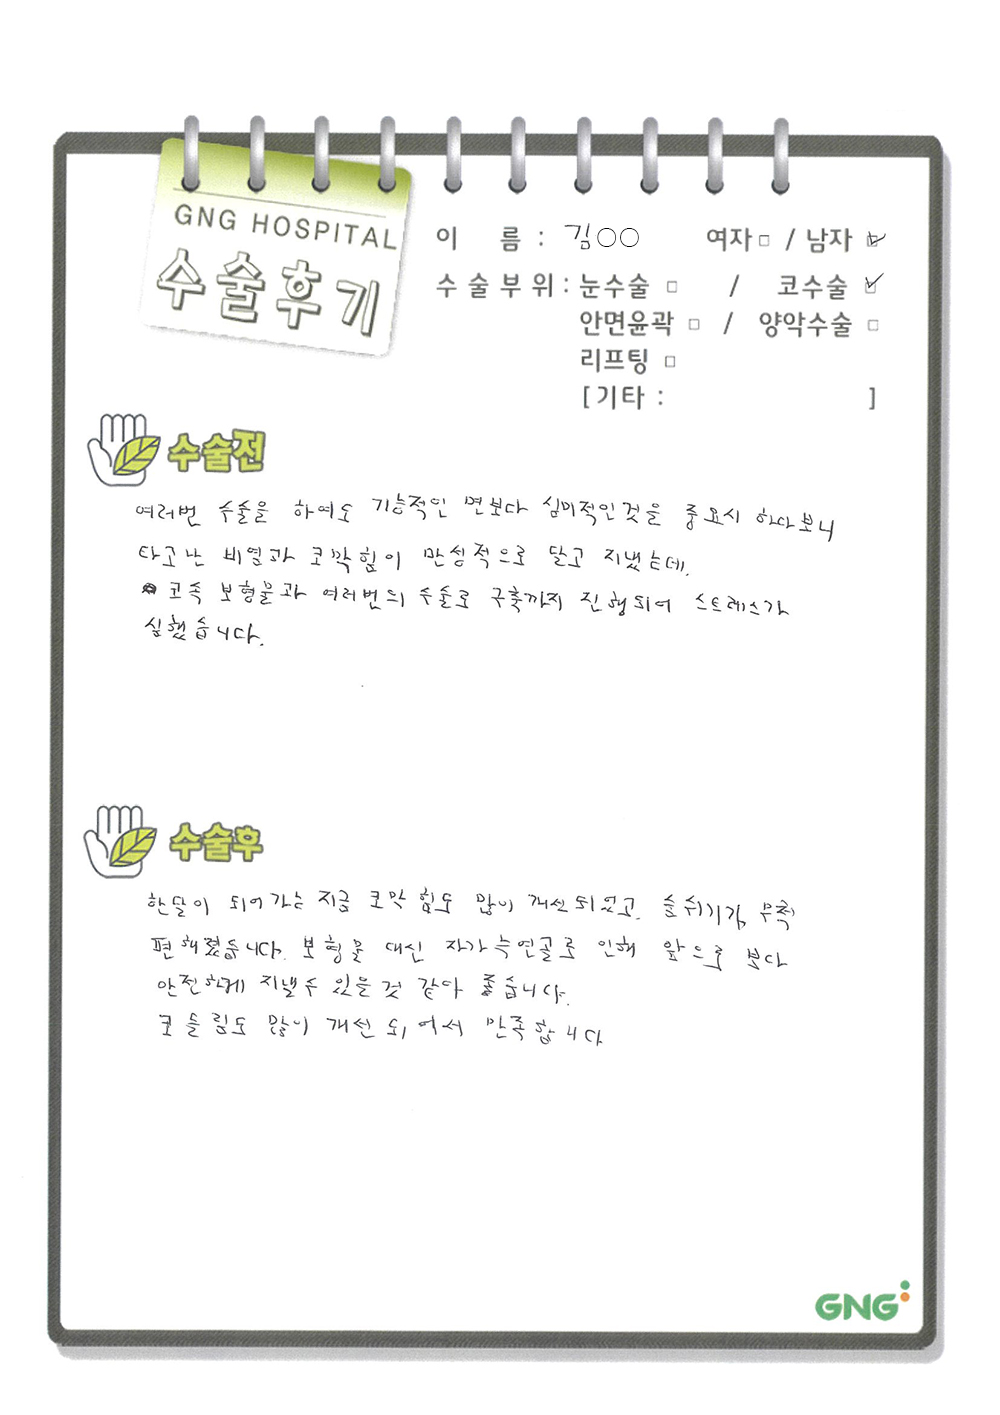 GNG HOSPITAL
수술후기
이 름 : 김○○ 여자□ / 남자☑
수술부위 : 눈수술 □ / 코수술 ☑
안면윤곽 □ / 양악수술 □
리프팅 □
[기타 : ]
수술전
여러번 수술을 하여도 기능적인 면보다 심미적인것을 중요시 하다보니
타고난 비염과 코막힘이 만성적으로 달고 지냈는데.
코속 보형물과 여러번의 수술로 구축까지 진행되어 스트레스가
심했습니다.
수술후
한달이 되어가는 지금 코막힘도 많이 개선되었고. 숨쉬기가 무척
편해졌습니다. 보형물 대신 자가늑연골로 인해 앞으로 보다
안전하게 지낼수 있을것 같아 좋습니다.
코들림도 많이 개선되어서 만족합니다
GNG